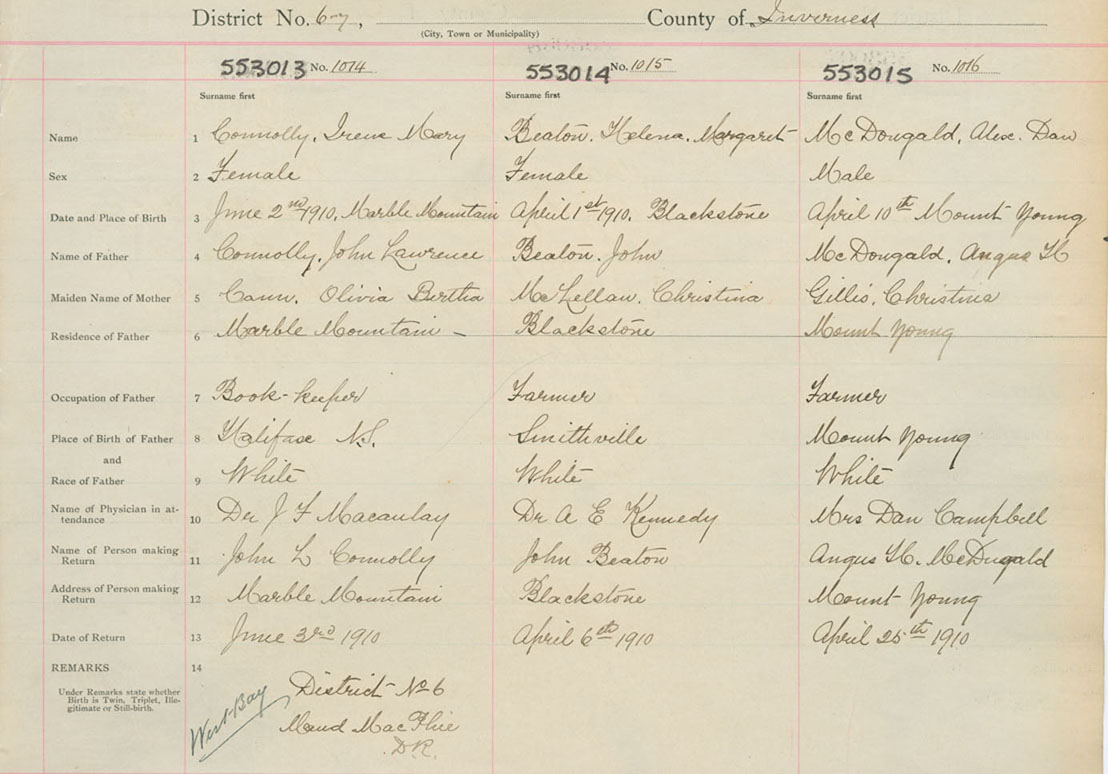 District No. 6-7, County of Inverness
(City, Town or Municipality)
553013 No. 1014 553014 No. 1015 553015 No. 1016
Surname first Surname first Surname first
Name 1 Connolly, Irene Mary Beaton, Helena, Margaret McDougald, Alex. Dan
Sex 2 Female Female Male
Date and Place of Birth 3 June 2nd 1910, Marble Mountain April 1st 1910, Blackstone April 10th Mount Young
Name of Father 4 Connolly, John Lawrence Beaton, John McDougald, Angus H
Maiden Name of Mother 5 Cann, Olivia Bertha McLellan, Christina Gillis, Christina
Residence of Father 6 Marble Mountain – Blackstone Mount Young
Occupation of Father 7 Book-keeper Farmer Farmer
Place of Birth of Father 8 Halifax N.S. Smithville Mount Young
and
Race of Father 9 White White White
Name of Physician in at-
tendance 10 Dr J F Macaulay Dr A E Kennedy Mrs Dan Campbell
Name of Person making
Return 11 John L Connolly John Beaton Angus H. McDugald
Address of Person making
Return 12 Marble Mountain Blackstone Mount Young
Date of Return 13 June 3rd 1910 April 6th 1910 April 25th 1910
REMARKS 14
Under Remarks state whether
Birth is Twin, Triplet, Ille-
gitimate or Still-birth.
District No 6
West Bay
Maud MacPhie
D.R.